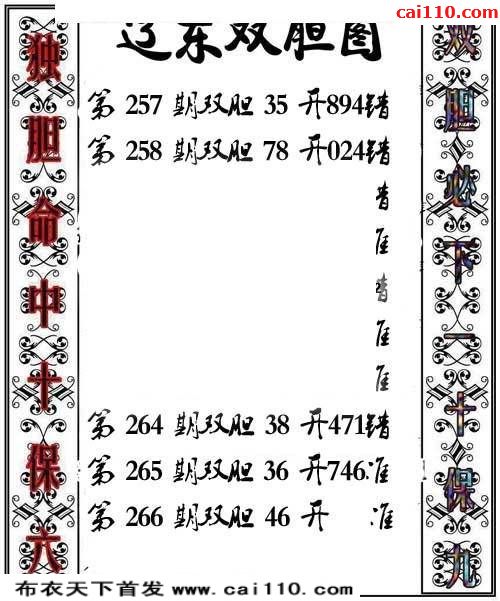 cai110.com
辽东双胆图
独胆命中十保六
双胆必下一十保九
第 257 期双胆 35 开894错
第 258 期双胆 78 开024错
错
准
错
准
准
第 264 期双胆 38 开471错
第 265 期双胆 36 开746准
第 266 期双胆 46 开 准
布衣天下首发 www.cai110.com